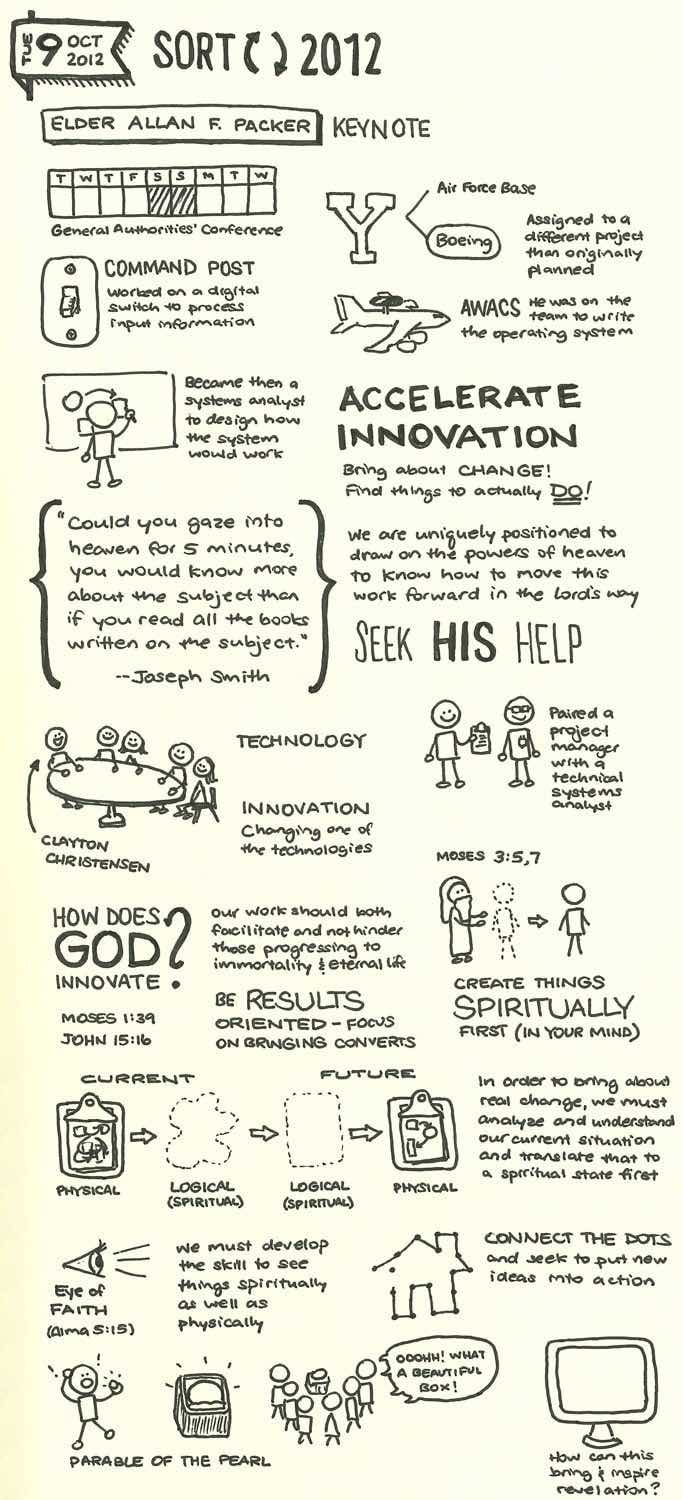 TUE 9 OCT 2012
SORT 2012
ELDER ALLAN F. PACKER KEYNOTE
T W T F S S M T W
General Authorities' Conference
Y
Air Force Base
Boeing
Assigned to a
different project
than originally
planned
COMMAND POST
Worked on a digital
switch to process
input information
AWACS He was on the
team to write
the operating system
Became then a
systems analyst
to design how
the system
would work
ACCELERATE
INNOVATION
Bring about CHANGE!
Find things to actually DO!
"Could you gaze into
heaven for 5 minutes,
you would know more
about the subject than
if you read all the books
written on the subject."
--Joseph Smith
We are uniquely positioned to
draw on the powers of heaven
to know how to move this
work forward in the Lord's way
SEEK HIS HELP
CLAYTON
CHRISTENSEN
TECHNOLOGY
INNOVATION
Changing one of
the technologies
Paired a
project
manager
with a
technical
systems
analyst
MOSES 3:5,7
HOW DOES
GOD
INNOVATE?
MOSES 1:39
JOHN 15:16
our work should both
facilitate and not hinder
those progressing to
immortality & eternal life
BE RESULTS
ORIENTED - FOCUS
ON BRINGING CONVERTS
CREATE THINGS
SPIRITUALLY
FIRST (IN YOUR MIND)
CURRENT
FUTURE
PHYSICAL
LOGICAL
(SPIRITUAL)
LOGICAL
(SPIRITUAL)
PHYSICAL
In order to bring about
real change, we must
analyze and understand
our current situation
and translate that to
a spiritual state first
Eye of
FAITH
(Alma 5:15)
we must develop
the skill to see
things spiritually
as well as
physically
CONNECT THE DOTS
and seek to put new
ideas into action
PARABLE OF THE PEARL
OOOHH! WHAT
A BEAUTIFUL
BOX!
How can this
bring & inspire
revelation?